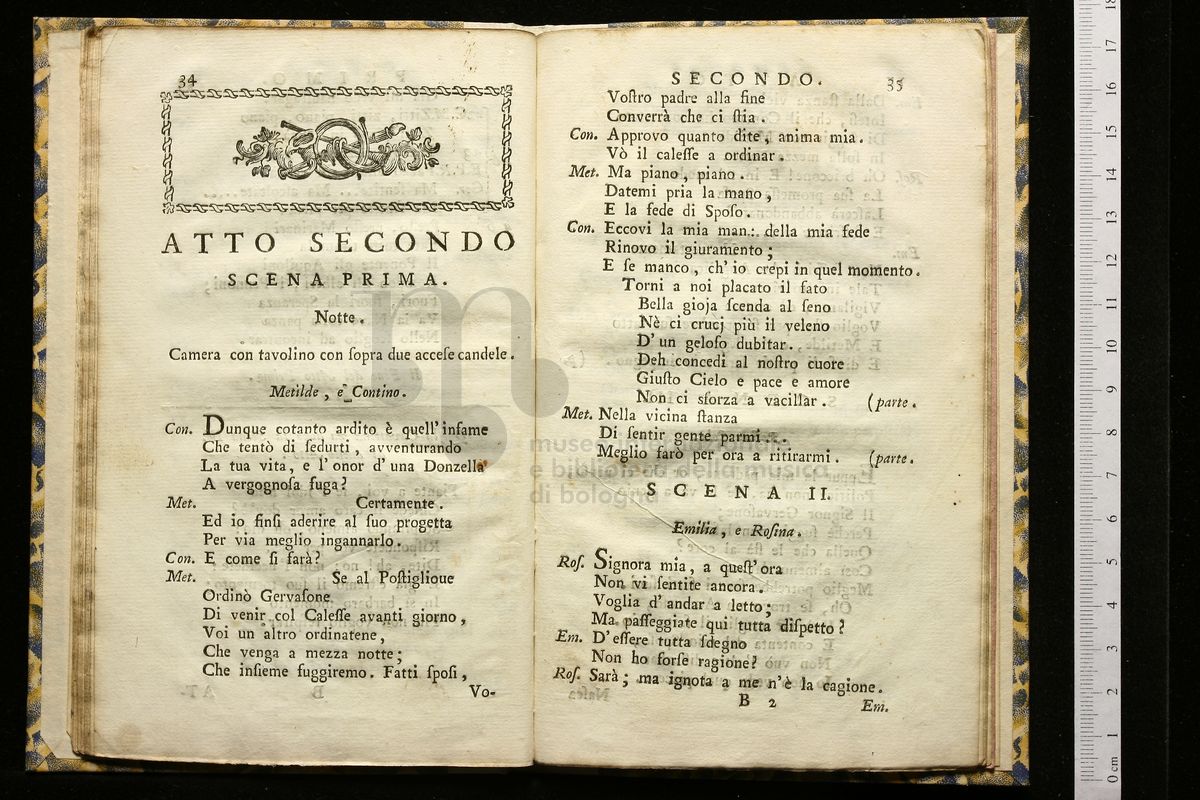 34
ATTO SECONDO
SCENA PRIMA.
Notte.
Camera con tavolino con ſopra due acceſe candele.
Metilde, e Contino.
Con. Dunque cotanto ardito è quell' infame
Che tentò di ſedurti, avventurando
La tua vita, e l' onor d' una Donzella
A vergognoſa fuga?
Met. Certamente.
Ed io finſi aderire al ſuo progetta
Per via meglio ingannarlo.
Con. E come ſi farà?
Met. Se al Poſtiglioue
Ordinò Gervaſone
Di venir col Caleſſe avanti giorno,
Voi un altro ordinatene,
Che venga a mezza notte;
Che inſieme fuggiremo. Fatti ſpoſi,
Vo-
SECONDO. 35
Voſtro padre alla fine
Converrà che ci ſtia.
Con. Approvo quanto dite, anima mia.
Vò il caleſſe a ordinar.
Met. Ma piano, piano.
Datemi pria la mano,
E la fede di Spoſo.
Con. Eccovi la mia man.: della mia fede
Rinovo il giuramento;
E ſe manco, ch' io crepi in quel momento.
Torni a noi placato il fato
Bella gioja ſcenda al ſeno
Nè ci crucj più il veleno
D' un geloſo dubitar.
Deh concedi al noſtro cuore
Giuſto Cielo e pace e amore
Non ci sforza a vacillar. (parte.
Met. Nella vicina ſtanza
Di ſentir gente parmi...
Meglio farò per ora a ritirarmi. (parte.
SCENA II.
Emilia, e Roſina.
Roſ. Signora mia, a queſt' ora
Non vi ſentite ancora
Voglia d' andar a letto;
Ma paſſeggiate qui tutta diſpetto?
Em. D' eſſere tutta ſdegno
Non ho forſe ragione?
Roſ. Sarà; ma ignota a me n'è la cagione.
B 2 Em.
museo internazionale
e biblioteca della musica
di bologna
0 cm 1 2 3 4 5 6 7 8 9 10 11 12 13 14 15 16 17 18